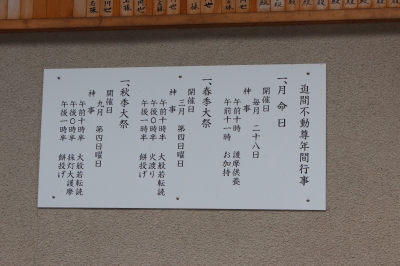 迫間不動尊年間行事
一、月命日
開催日
毎月 二十八日
神事
午前十時 護摩供養
午前十一時 お加持
一、春季大祭
開催日
三月 第四日曜日
神事
午前十時半 大般若転読
午後〇時半 火渡り
午後一時半 餅投げ
一、秋季大祭
開催日
九月 第四日曜日
神事
午前十時半 大般若転読
午後〇時半 採灯大護摩
午後一時半 餅投げ